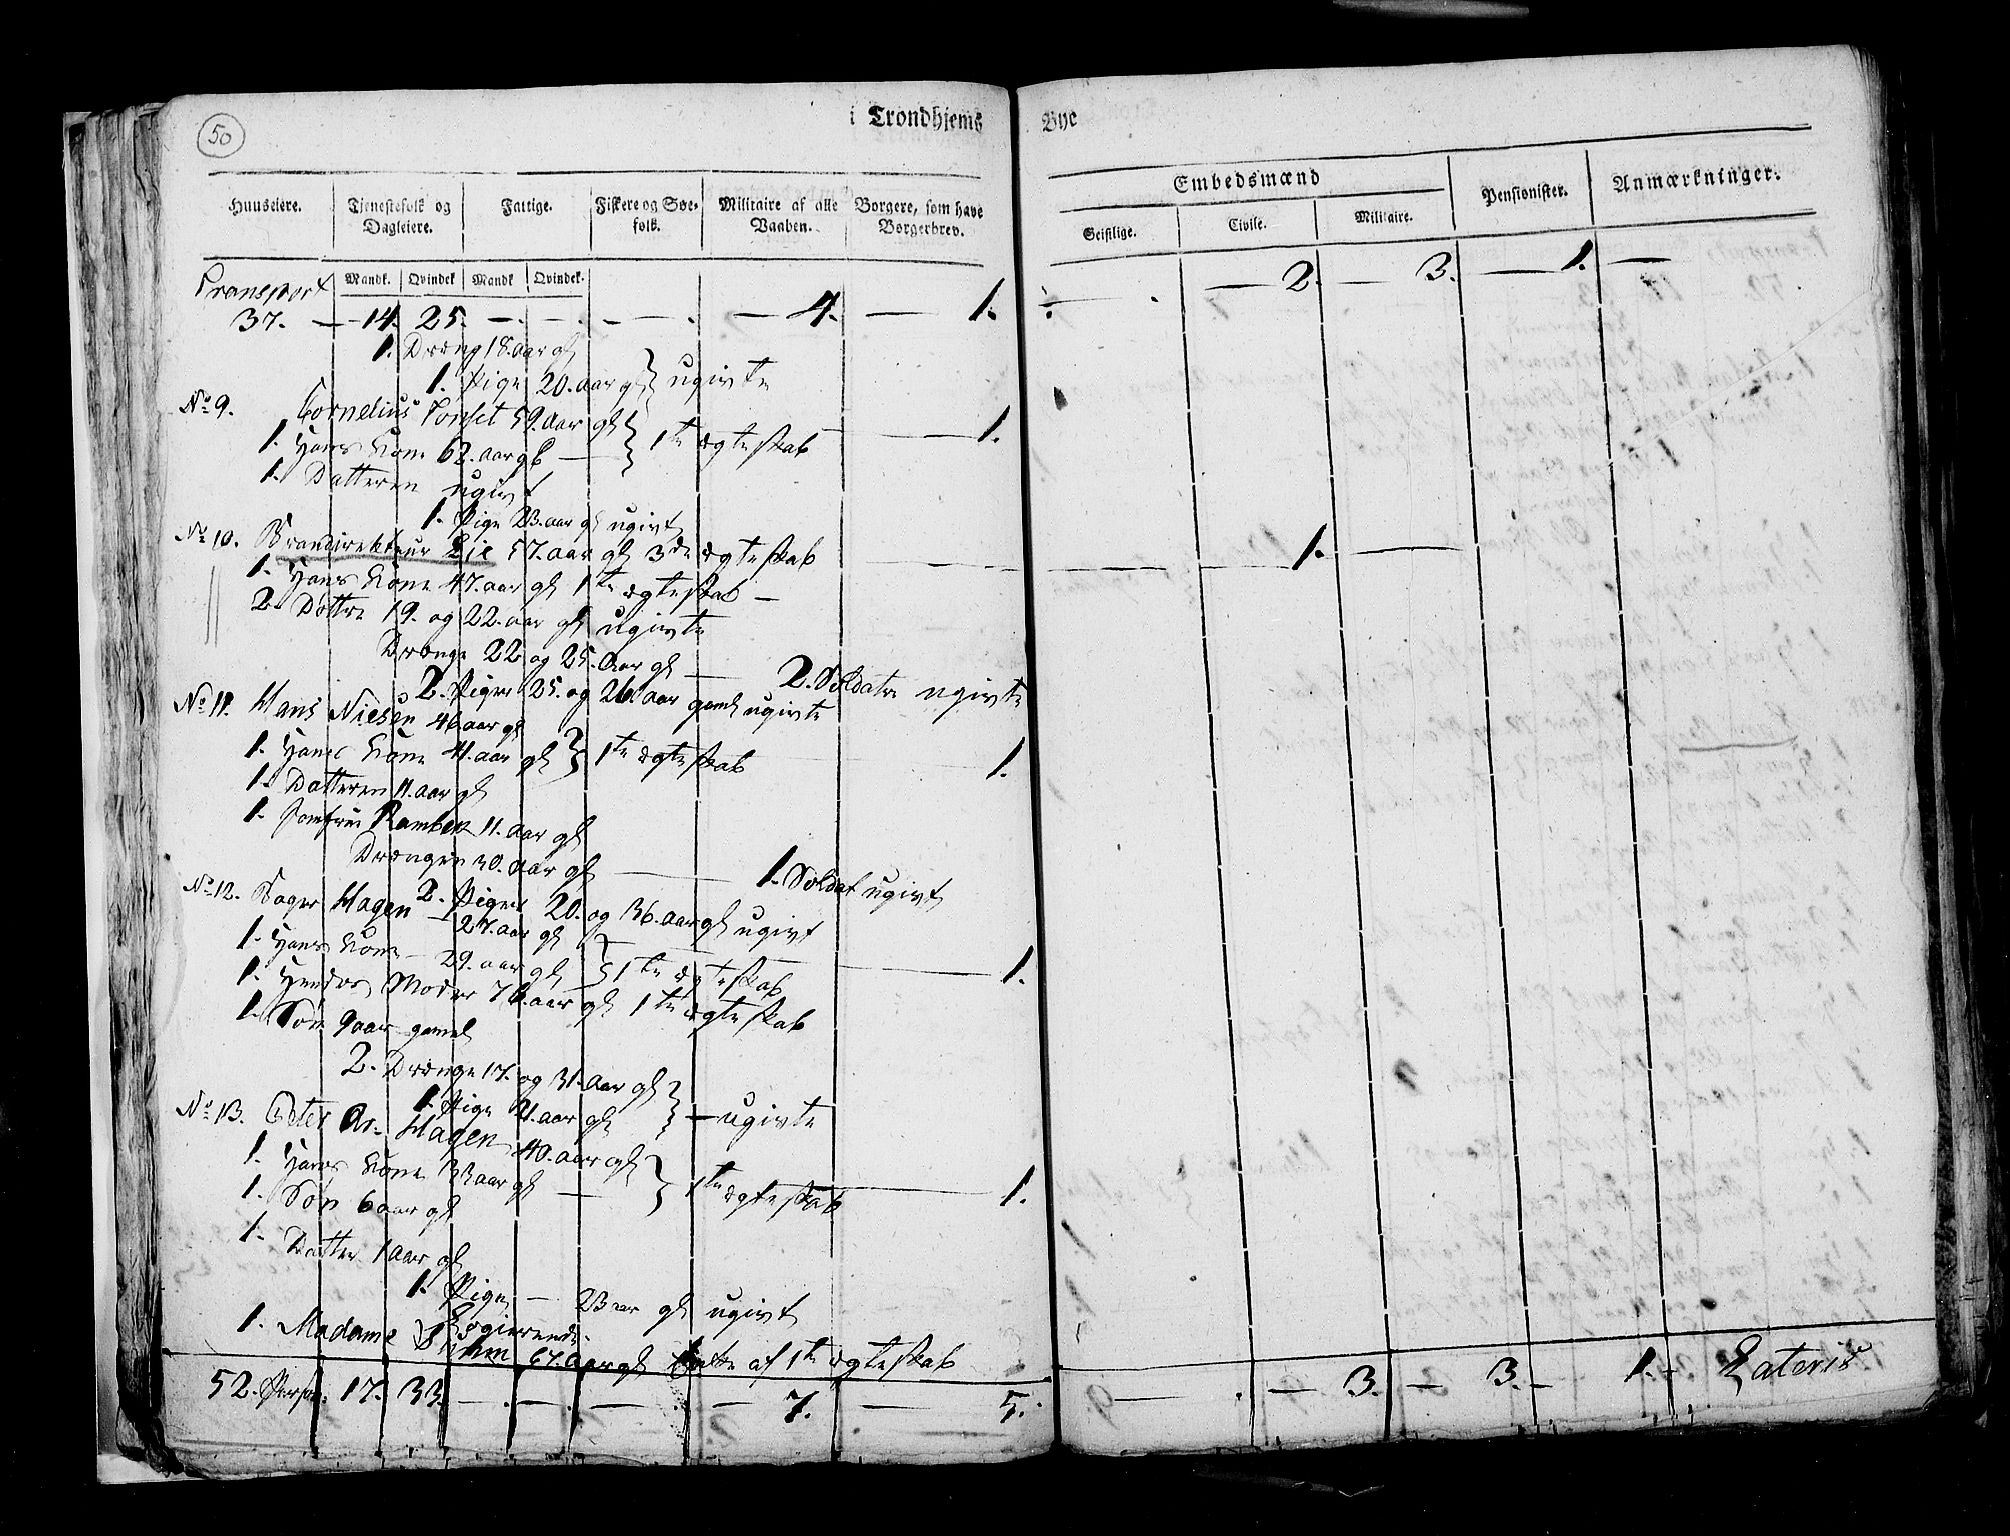 50
i Trondhjems Bye
Huuseiere. Tjenestefolk og Dagleiere. Fattige. Fiskere og Søefolk. Militaire af alle Vaaben. Borgere, som have Borgerbrev. Embedsmænd Pensionister. Anmærkninger.
Geistlige. Civile. Militaire.
Mandk. Qvindek Mandk Qvindek.
Transport
37. — 14. 25. — — — — 4. — 1. — 2. — 3. — 1. —
1. Dræng 18. aar gl
1. Pige 20. aar gl } ugivte
No 9. Cornelius Tonset 59. aar gl
1. Hans Kone 62. aar gl — } 1te ægteskab — 1.
1. Datteren ugivt
1. Pige 23. aar gl ugivt
No 10. Brandirekteur Lie 57. aar gl 3de ægteskab — 1. —
1. Hans Kone 47. aar gl 1te ægteskab —
2. Døttre 19. og 22. aar gl ugivte
Drænge 22 og 25. Aar gl — 2. Soldater ugivte
2. Piger 25. og 26. aar gaml ugivte
No 11. Hans Niesen 46 aar gl
1. Hans Kone 41. aar gl } 1te ægteskab — 1.
1. Datteren 11. aar gl
1. Jomfrue 11. aar gl
Drængen 30. aar gl — 1. Soldat ugivt
2. Piger 20. og 36. aar gl ugivt
No 12. Bager Hagen — 27. aar gl
1. Hans Kone — 29. aar gl } 1te ægteskab — 1.
1. Hendes Moder 76. aar gl 1te ægteskab
1. Søn 9 aar gamel
2. Drænge 17. og 31. Aar gl
1. Pige 21. aar gl } — ugivte
No 13. Peter Hagen 40. aar gl
1. Hans Kone 33 aar gl — } 1te ægteskab — 1.
1. Søn 6 aar gl
1. Datter 1 aar gl
1. Pige — 23 aar gl ugivt
1. Madame Logierende 67. aar gl Enke af 1te ægteskab
52. Person. 17. 33. — — — — 7. — 5. — 3. — 3. — 1. — Lateris